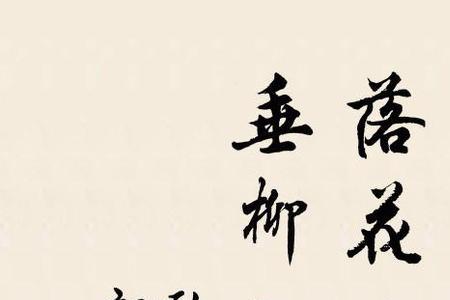 落花
垂柳